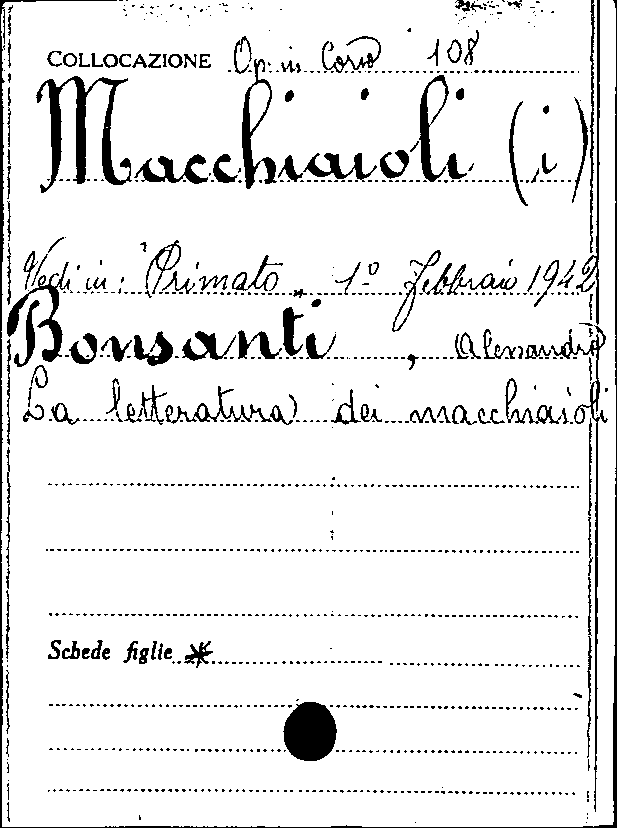 COLLOCAZIONE Op. in Corso 108
Macchiaioli (i)
Vedi in: "Primato" 1º Febbraio 1942
Bonsanti, Alessandro
La letteratura dei macchiaioli
Schede figlie *